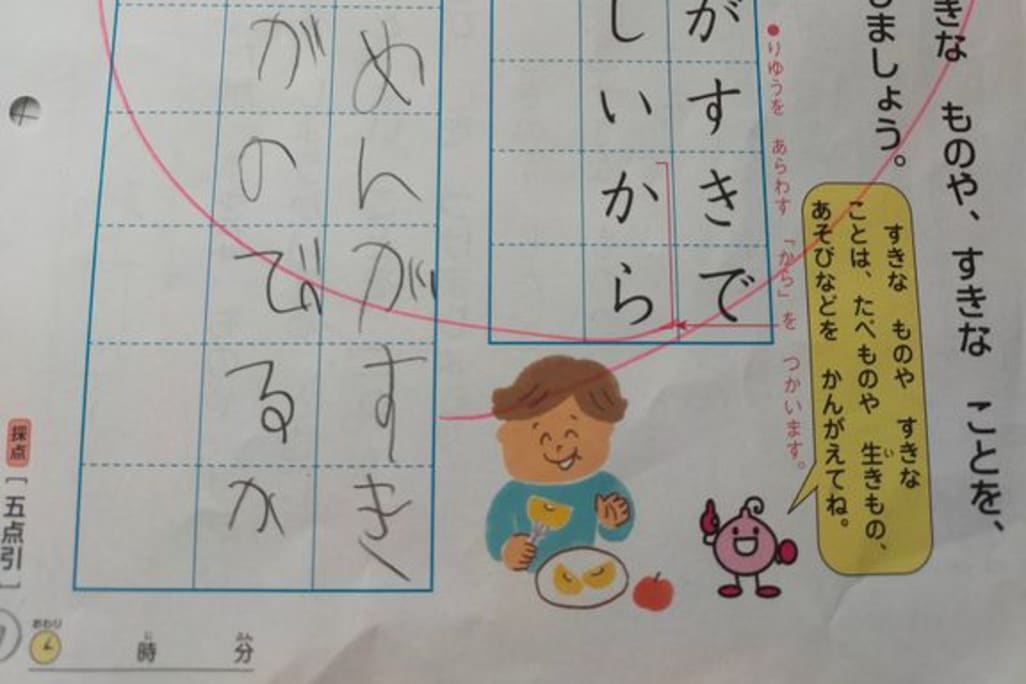 きな ものや、すきな ことを、
しましょう。
すきな ものや すきな
ことは、たべものや 生きもの、
い
あそびなどを かんがえてね。
●りゆうを あらわす 「から」を つかいます。
がすきで
しいから
めんがすき
がのびるか
採点［五点引］
おわり 時 分
じ ふん